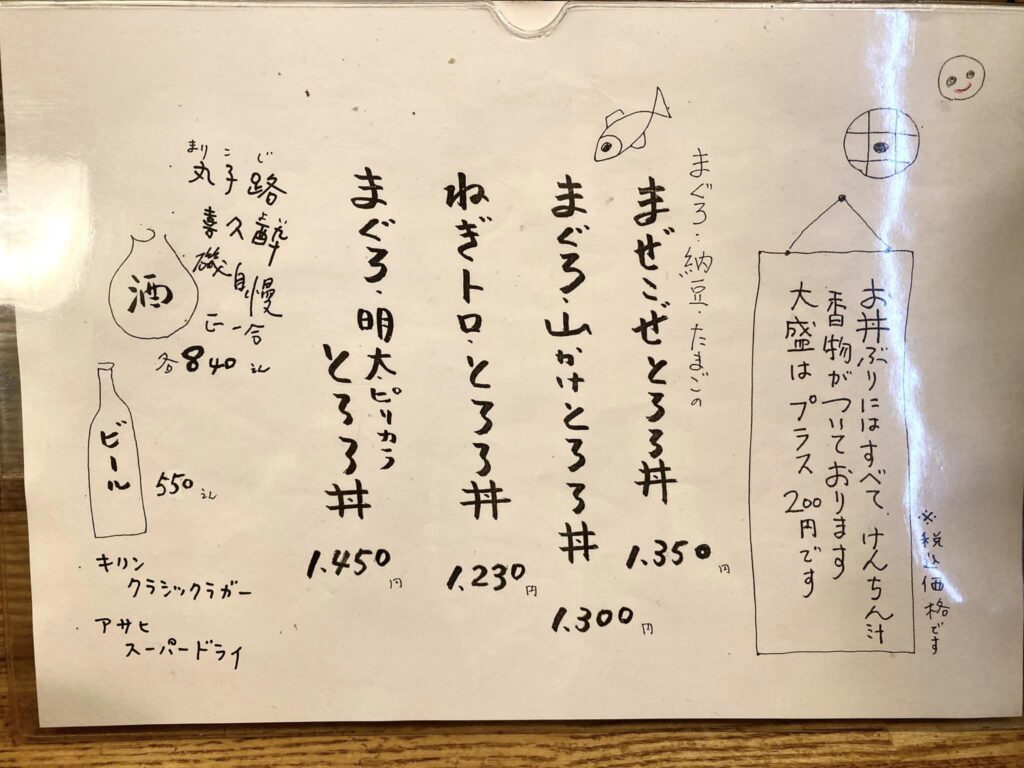 ※税込価格です
お丼ぶりにはすべて、けんちん汁
香物がついております
大盛は プラス 200円です
まぐろ・納豆・たまごの
まぜこぜとろろ丼
1.350円
まぐろ・山かけとろろ丼
1.300円
ねぎトロ・とろろ丼
1.230円
まぐろ・明太ピリカラ
とろろ丼
1.450円
まり こ じ
丸子路
喜久酔
磯自慢
正一合
各840えん
酒
ビール
550えん
キリン
クラシックラガー
アサヒ
スーパードライ